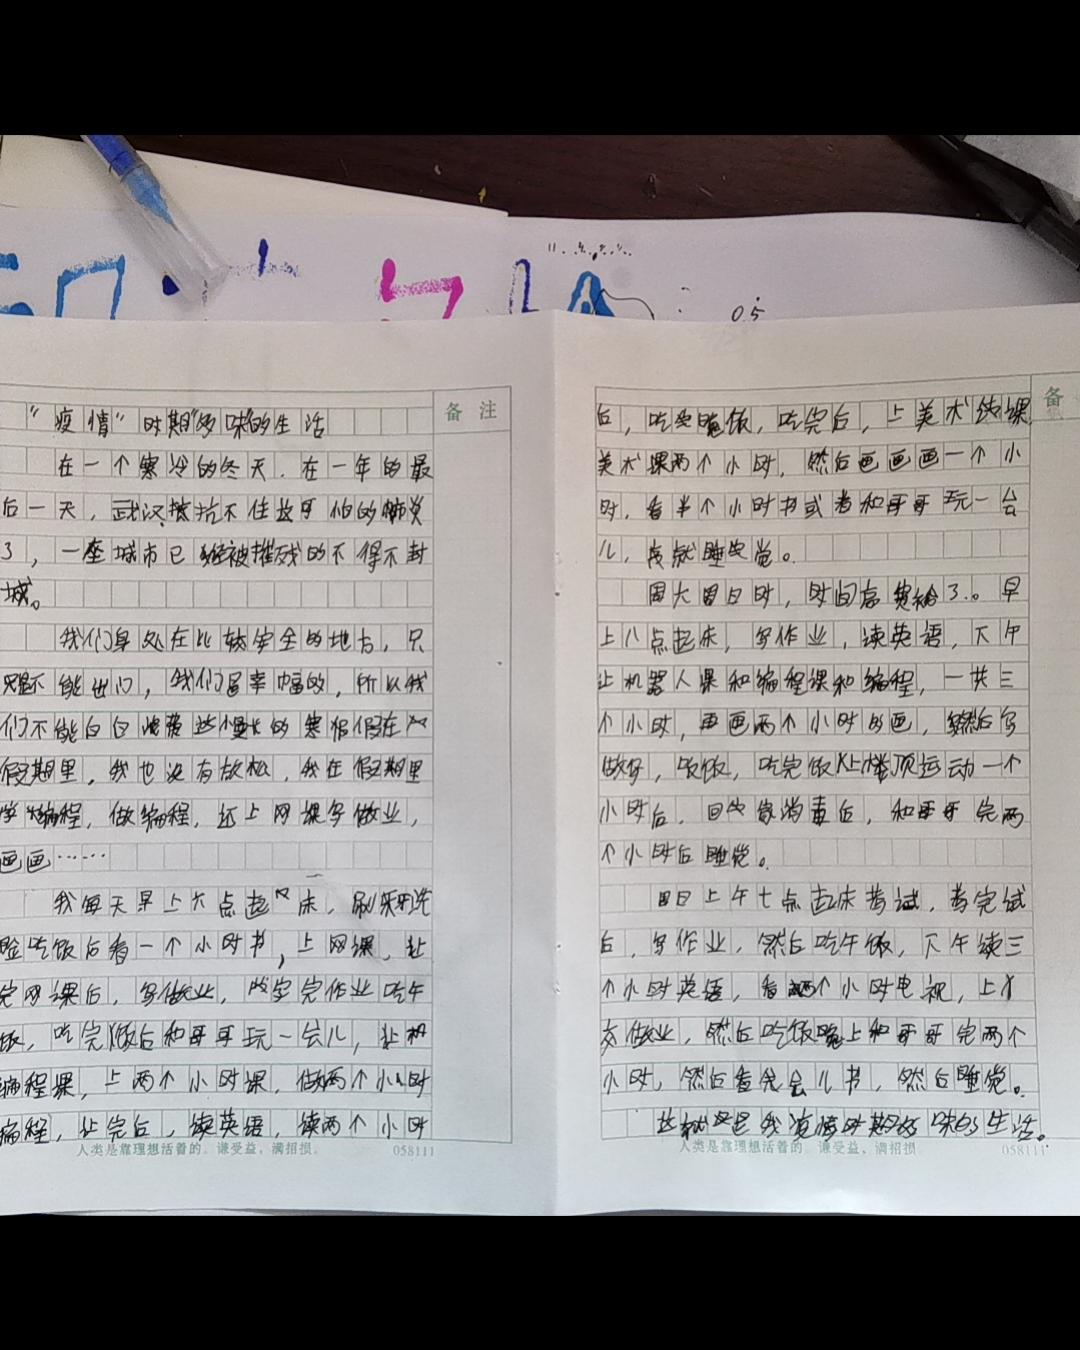 05
备注
"疫情"时期"多味"的生活
在一个寒冷的冬天，在一年的最
后一天，武汉抵抗不住故可怕的肺炎
了，一座城市已经被摧残的不得不封
城。
我们身处在比较安全的地方，只
是不能出门，我们是幸福的，所以我
们不能白白浪费这漫长的寒假假在
假期里，我也没有放松，我在假期里
学编程，做编程，还上网课写做业，
画画……
我每天早上六点起床，刷牙洗
脸吃饭后看一个小时书，上网课，让
完网课后，写做业，完作业吃午
饭，吃完饭后和哥哥玩一会儿，让机
编程课，上两个小时课，做两个小时
编程，让完后，读英语，读两个小时
人类是靠理想活着的。谦受益，满招损。 058111
备
后，吃晚饭，吃完后，上美术课
美术课两个小时，然后画画画一个小
时，看半个小时书或者和哥哥玩一会
儿，我就睡觉。
周六周日时，时间
了。早
上八点起床，写作业，读英语，下午
让机器人课和编程课和编程，一共三
个小时，再画两个小时的画，然后写
做好，饭饭，吃完饭上楼顶运动一个
小时后，回家消毒后，和哥哥完两
个小时后睡觉。
周日上午七点起床考试，考完试
后，写作业，然后吃午饭，下午读三
个小时英语，看两个小时电视，上
做业，然后吃饭晚上和哥哥完两个
小时，然后看会儿书，然后睡觉。
这就是我疫情时期的味的生活。
人类是靠理想活着的。谦受益，满招损 058111